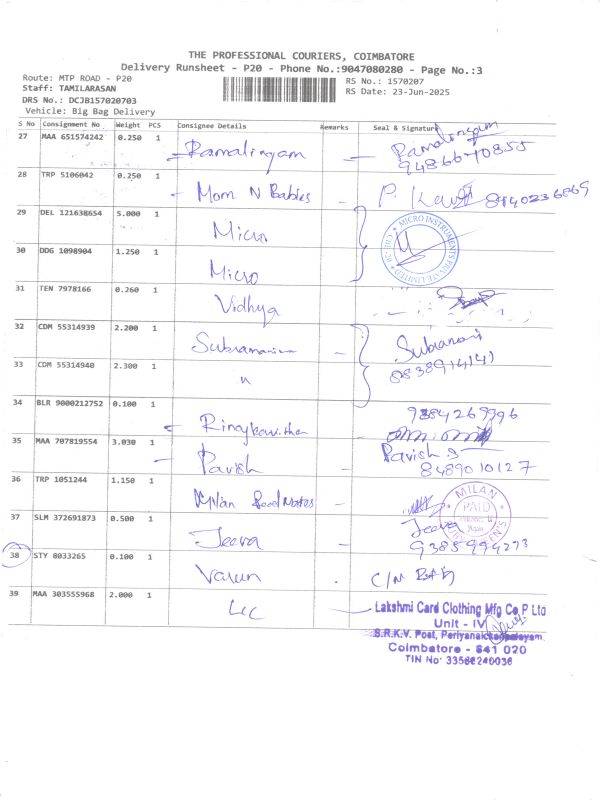 THE PROFESSIONAL COURIERS, COIMBATORE
Delivery Runsheet - P20 - Phone No.:9047080280 - Page No.:3
Route: MTP ROAD - P20
RS No.: 1570207
Staff: TAMILARASAN
RS Date: 23-Jun-2025
DRS No.: DCJB157020703
Vehicle: Big Bag Delivery
S No Consignment No Weight PCS Consignee Details Remarks Seal & Signature
27 MAA 651574242 0.250 1 Ramalingam Ramalingam
28 TRP 5106042 0.250 1 Mom N Babies P.
29 DEL 121638654 5.000 1 Micro
MICRO INSTRUMENTS PRIVATE LIMITED
30 DDG 1098904 1.250 1 Micro
31 TEN 7978166 0.260 1 Vidhya
32 CDM 55314939 2.200 1 Subramaniam
8838914141
33 CDM 55314940 2.300 1 "
34 BLR 9000212752 0.100 1
9384269996
35 MAA 707819554 3.030 1 Pavish Pavish S
8489010127
36 TRP 1051244 1.150 1 Milan
MILAN PAID
37 SLM 372691873 0.500 1 Jeeva Jeeva
9385994273
38 STY 8033265 0.100 1 Varun C/N
39 MAA 303555968 2.000 1 LCC
Lakshmi Card Clothing Mfg Co P Ltd
Unit - IV
S.R.K.V. Post, Periyanaickenpalayam
Coimbatore - 641 020
TIN No: 33566240036